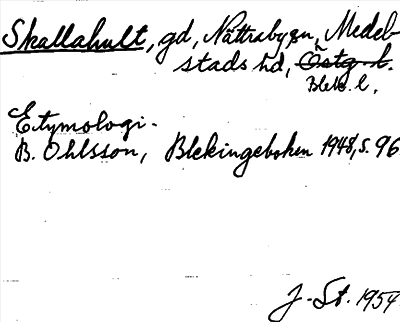 Skallahult, gd, Nättraby sn, Medel-
stads hd, Östg. l.
Blek. l.
Etymologi.
B. Ohlsson, Blekingeboken 1948, s. 96
J. St. 1954